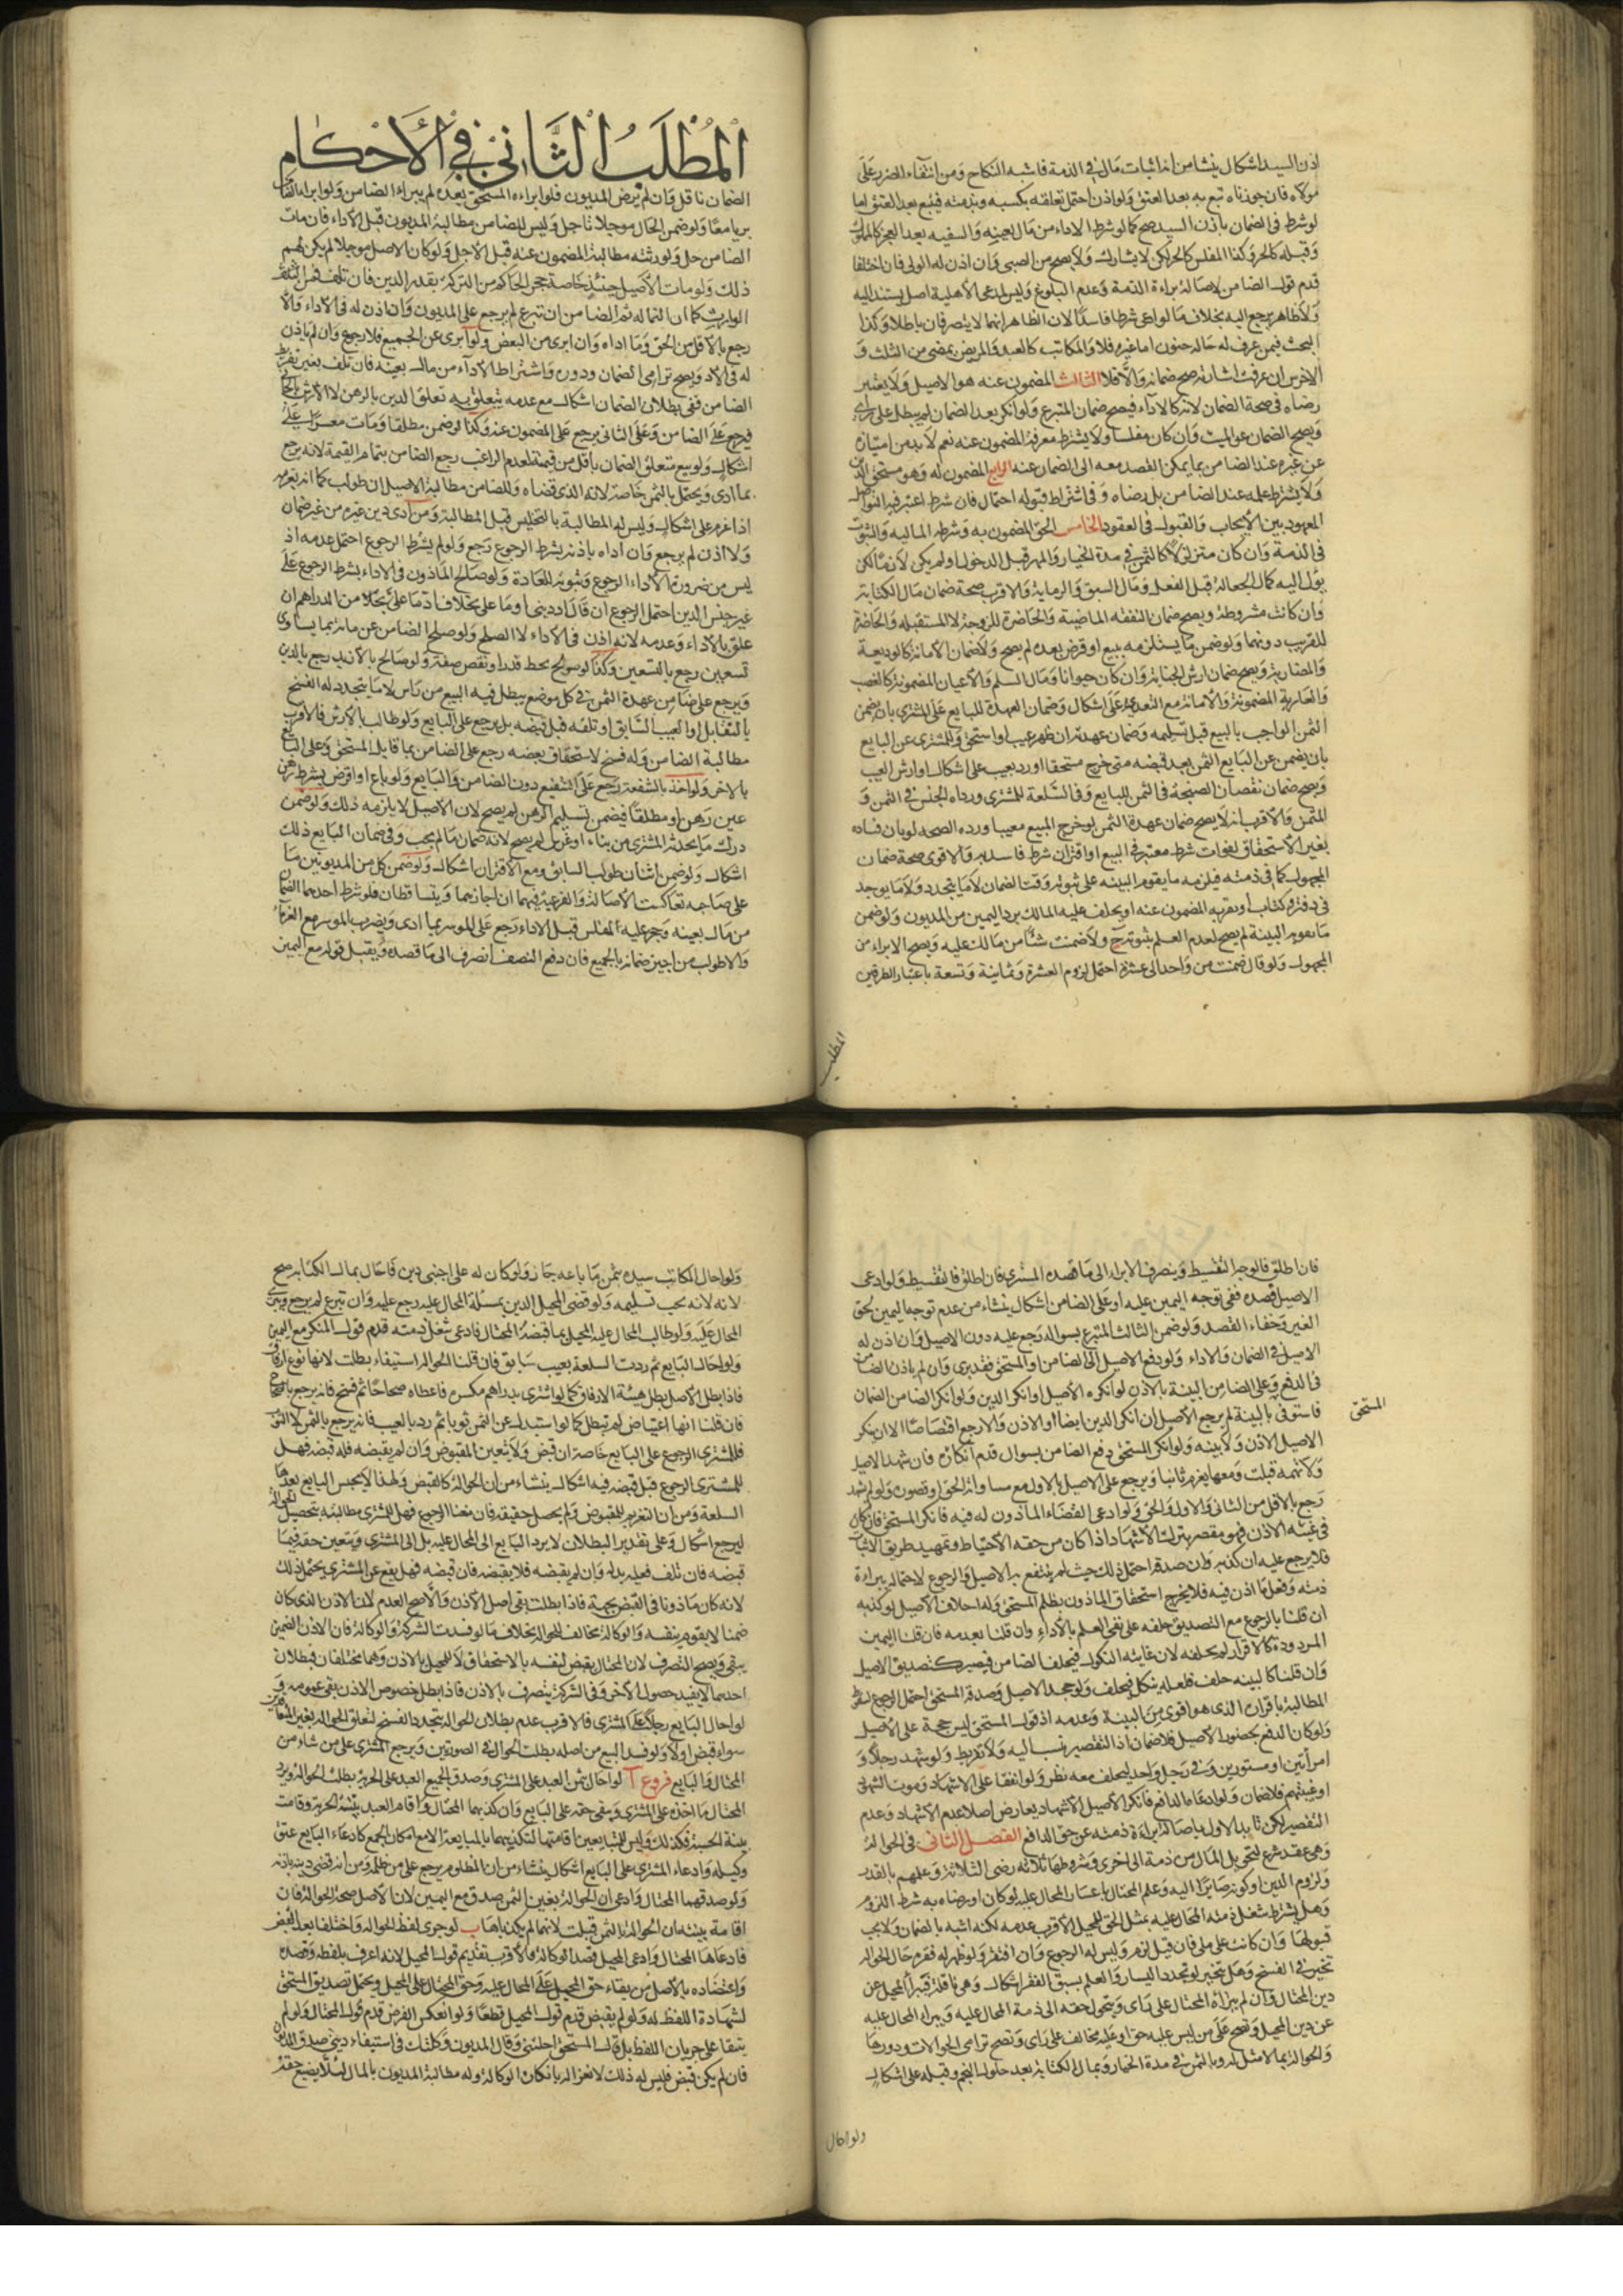 اذن السيد اشكال ينشا من ان اثبات مال في الذمة فاشبه النكاح ومن انتفاء الضرر على
مولاه فان جوزناه تبع به بعد العتق ولو اذن احتمل تعلقه بكسبه وبذمته فيتبع بعد العتق اما
لو شرط في الضمان باذن السيد صح كما لو شرط الاداء من مال بعينه والسفيه بعد الحجر كالمملوك
وقبله كالحر وكذا المفلس كالحر لكن لا يشارك ولا يصح من الصبي وان اذن له الولي فان اختلفا
قدم قول الضامن لاصالة براءة الذمة وعدم البلوغ وليس لمدعي الاهلية اصل يستند اليه
ولا ظاهر يرجع اليه بخلاف ما لو ادعى شرطا فاسدا لان الظاهر انهما لا يتصرفان باطلا وكذا
البحث فيمن عرف له حالة جنون اما غيره فلا والمكاتب كالعبد والمريض يمضي من الثلث و
الاخرس ان عرفت اشارته صح ضمانه والا فلا الثالث المضمون عنه هو الاصيل ولا يعتبر
رضاه في صحة الضمان لانه كالاداء فيصح ضمان المتبرع ولو انكر بعد الضمان لم يبطل على راي
ويصح الضمان عن الميت وان كان مفلسا ولا يشترط معرفة المضمون عنه نعم لا بد من امتيازه
عن غيره عند الضامن بما يمكن القصد معه الى الضمان عنه الرابع المضمون له وهو مستحق الدين
ولا يشترط علمه عند الضامن بل رضاه وفي اشتراط قبوله احتمال فان شرط اعتبر فيه التواصل
المعهود بين الايجاب والقبول في العقود الخامس الحق المضمون به وشرطه المالية والثبوت
في الذمة وان كان متزلزلا كالثمن في مدة الخيار والمهر قبل الدخول او لم يكن لازما لكن
يؤل اليه كمال الجعالة قبل الفعل ومال السبق والرماية والاقرب صحة ضمان مال الكتابة
وان كانت مشروطة ويصح ضمان النفقة الماضية والحاضرة للزوجة لا المستقبلة والحاضرة
للقريب دونهما ولو ضمن ما يستلزمه ببيع او قرض بعده لم يصح ولا ضمان الامانة كالوديعة
والمضاربة ويصح ضمان ارش الجناية وان كان حيوانا ومال السلم والاعيان المضمونة كالغصب
والعارية المضمونة والامانة مع التعدي على اشكال وضمان العهدة للبايع على المشتري بان يضمن
الثمن الواجب بالبيع قبل تسليمه وضمان عهدته ان ظهر عيب او استحق وللمشتري عن البايع
بان يضمن عن البايع الثمن بعد قبضه متى خرج مستحقا او رد بعيب على اشكال او ارش العيب
ويصح ضمان نقصان الصنجة في الثمن للبايع وفي السلعة للمشتري ورداءة الجنس في الثمن و
المثمن والاقرب انه لا يصح ضمان عهدة الثمن لو خرج المبيع معيبا ورده الصحة لو بان فساده
بغير الاستحقاق لفوات شرط معتبر في البيع او اقتران شرط فاسد به والاقوى صحة ضمان
المجهول كما في ذمته فيلزمه ما يقوم البينة على ثبوته وقت الضمان لا ما يتجدد ولا ما يوجد
في دفتر وكتاب او يقر به المضمون عنه او يحلف عليه المالك برد اليمين من المديون ولو ضمن
ما تقوم به البينة لم يصح لعدم العلم بثبوته ولا ضمنت شيئا من مالك عليه ويصح الابراء من
المجهول ولو قال ضمنت من واحد الى عشرة احتمل لزوم العشرة وثمانية وتسعة باعتبار الطرفين
المطلب
المطلب الثاني في الاحكام
الضمان ناقل وان لم يرض المديون فلو ابراءه المستحق بعده لم يبراء الضامن ولو ابراء الضامن
بريا معا ولو ضمن الحال موجلا تاجل وليس للضامن مطالبة المديون قبل الاداء فان مات
الضامن حل ولورثته مطالبة المضمون عنه قبل الاجل ولو كان الاصل موجلا لم يكن لهم
ذلك ولو مات الاصيل حينئذ خاصة حجر الحاكم من التركة بقدر الدين فان تلف فمن
الوارث كما ان النماء له ثم الضامن ان تبرع لم يرجع على المديون وان اذن له في الاداء والا
رجع بالاقل من الحق وما اداه وان ابرئ من البعض ولو ابرئ عن الجميع فلا رجوع وان لم ياذن
له في الاداء ويصح ترامي الضمان ودوره واشتراط الاداء من مال بعينه فان تلف بغير تفريط
الضامن ففي بطلان الضمان اشكال ومع عدمه يتعلق به تعلق الدين بالرهن لا الارش بالجاني
فيرجع على الضامن وعلى الثاني يرجع على المضمون عنه وكذا لو ضمن مطلقا ومات معسرا على
اشكال ولو بيع متعلق الضمان باقل من قيمته لعدم الراغب رجع الضامن بتمام القيمة لانه يرجع
بما ادى ويحتمل بالثمن خاصة لانه الذي قضاه وللضامن مطالبة الاصيل ان طولب كما انه يغرمه
اذا غرم على اشكال وليس له المطالبة بالتخليص قبل المطالبة ومن ادى دين غيره من غير ضمان
ولا اذن لم يرجع وان اداه باذنه بشرط الرجوع رجع ولو لم يشترط الرجوع احتمل عدمه اذ
ليس من ضرورة الاداء الرجوع وثبوته للعادة ولو صالح الماذون في الاداء بشرط الرجوع على
غير جنس الدين احتمل الرجوع ان قال اد ديني او ما علي بخلاف اد ما علي من الدراهم ان
علق بالاداء وعدمه لانه اذن في الاداء لا الصلح ولو صالح الضامن عن مائة بما يساوي
تسعين رجع بالتسعين وكذا لو سولح بحط قدر او نقص صفة ولو صالح بالازيد رجع بالدين
ويرجع على ضامن عهدة الثمن في كل موضع يبطل فيه البيع من راس لا ما يتجدد له الفسخ
بالتقايل او العيب السابق او تلفه قبل قبضه بل يرجع على البايع ولو طالب بالارش فالاقرب
مطالبة الضامن وله فسخ لاستحقاق بعضه رجع على الضامن بما قابل المستحق وعلى البايع
بالاخر ولو اخذ بالشفعة رجع على الشفيع دون الضامن والبايع ولو باع او اقرض بشرط رهن
عين رهن او مطلقا فيضمن تسليم الرهن لم يصح لان الاصيل لا يلزمه ذلك ولو ضمن
درك ما يحدثه المشتري من بناء او غرس لم يصح لانه ضمان ما لم يجب وفي ضمان البايع ذلك
اشكال ولو ضمن اثنان طولب السابق ومع الاقتران اشكال ولو ضمن كل من المديونين ما
على صاحبه تعاكست الاصالة والفرعية فيهما ان اجازهما ويتساقطان فلو شرط احدهما الضمان
من مال بعينه وحجر عليه المفلس قبل الاداء رجع على الموسر بما ادى ويضرب الموسر مع الغرماء
والا طولب من اجيز ضمانه بالجميع فان دفع النصف انصرف الى ما قصده ويقبل قوله مع اليمين
فان اطلق فالوجه التقسيط وينصرف الابراء الى ما قصده المشتري فان اطلق فالتقسيط ولو ادعى
الاصيل قصده ففي توجه اليمين عليه او على الضامن اشكال ينشاء من عدم توجه اليمين لحق
الغير وخفاء القصد ولو ضمن الثالث المتبرع بسواله رجع عليه دون الاصيل وان اذن له
الاصيل في الضمان والاداء ولو دفع الاصيل الى الضامن او المستحق فقد برئ وان لم ياذن الضامن
في الدفع وعلى الضامن البينة بالاذن لو انكره الاصيل او انكر الدين ولو انكر الضامن الضمان
المستحق
فاستوفى بالبينة لم يرجع الاصيل ان انكر الدين ايضا او الاذن والا رجع اقتصاصا الا ان ينكر
الاصيل الاذن ولا بينة ولو انكر المستحق دفع الضامن بسوال قدم انكاره فان شهد الاصيل
ولا تهمة قبلت ومعها يغرم ثانيا ويرجع على الاصيل بالاول مع مساواته الحق او قصوره ولو لم يشهد
رجع بالاقل من الثاني والاول والحق ولو ادعى القضاء الماذون له فيه فانكر المستحق فان كان
في غيبة الاذن فهو مقصر بترك الاشهاد اذا كان من حقه الاحتياط وتمهيد طريق الاثبات
فلا يرجع عليه ان كذبه وان صدقه احتمل ذلك حيث لم ينتفع به الاصيل والرجوع لاحتماله ببراءة
ذمته وفعل ما اذن فيه فلا يخرج استحقاق الماذون بظلم المستحق وله احلاف الاصيل لو كذبه
ان قلنا بالرجوع مع التصديق حلفه على نفي العلم بالاداء وان قلنا بعدمه فان قلنا اليمين
المردودة كالاقرار لم يحلفه لان غايته النكول فيحلف الضامن فيصير كتصديق الاصيل
وان قلنا كالبينة حلف فلعله ينكل فيحلف ولو جحد الاصيل وصدقه المستحق احتمل الرجوع لسقوط
المطالبة باقراره الذي هو اقوى من البينة وعدمه اذ قول المستحق ليس حجة على الاصيل
ولو كان الدفع بحضور الاصيل فلا ضمان اذ التقصير ينسب اليه ولا تفريط ولو شهد رجلا و
امرأتين او مستورين وفي رجل واحد ليحلف معه نظر ولو اتفقا على الاشهاد وموت الشهود
او غيبتهم فلا ضمان ولو ادعاه الدافع فانكر الاصيل الاشهاد تعارض اصلا عدم الاشهاد وعدم
التقصير لكن تايد الاول باصالة براءة ذمته عن حق الدافع الفصل الثاني في الحوالة
وهي عقد شرع لتحويل المال من ذمة الى اخرى وشروطها ثلاثة رضى الثلاثة وعلمهم بالقدر
ولزوم الدين او كونه صايرا اليه وعلم المحتال باعسار المحال عليه لو كان او رضاه به شرط اللزوم
وهل يشترط شغل ذمته المحال عليه بمثل الحق للمحيل الاقرب عدمه لكنه اشبه بالضمان ولا يجب
قبولها وان كانت على ملي فان قيل لزم وليس له الرجوع وان افتقر ولو ظهر له فقره حال الحوالة
تخير في الفسخ وهل يتخير لو تجدد اليسار والعلم بسبق الفقر اشكال وهي ناقلة فيبرأ المحيل عن
دين المحتال وان لم يبرأه المحتال على راي ويتحول حقه الى ذمة المحال عليه ويبراء المحال عليه
عن دين المحيل وتصح على من ليس عليه حق او عليه مخالف على راي وتصح ترامي الحوالات ودورها
والحوالة بما لا مثل له وبالثمن في مدة الخيار وبمال الكتابة بعد حلول النجم وقبله على اشكال
ولو احال
ولو احال المكاتب سيده بثمن ما باعه جاز ولو كان له على اجنبي دين فاحال بمال الكتابة صح
لانه يجب تسليمه ولو قضى المحيل الدين بمسئلة المحال عليه رجع عليه وان تبرع لم يرجع ويبرئ
المحال عليه ولو طالب المحال عليه المحيل بما قبضه المحتال فادعى شغل ذمته قدم قول المنكر مع اليمين
ولو احال البايع ثم ردت السلعة بعيب سابق فان قلنا الحوالة استيفاء بطلت لانها نوع ارفاق
فاذا بطل الاصل بطل هيئة الارفاق كما لو اشترى بدراهم مكسرة فاعطاه صحاحا ثم فسخ فانه يرجع بالصحاح
فان قلنا انها اعتياض لم تبطل كما لو استبدل عن الثمن ثوبا ثم رد بالعيب فانه يرجع بالثمن لا الثوب
فللمشتري الرجوع على البايع خاصة ان قبض ولا يتعين المقبوض وان لم يقبضه فله قبضه فهل
للمشتري الرجوع قبل قبضه فيه اشكال ينشاء من ان الحوالة كالقبض ولهذا لا يحبس البايع بعدها
السلعة ومن ان التغريم للمقبوض ولم يحصل حقيقة فان منعنا الرجوع فهل للمشتري مطالبته بتحصيل الحوالة
ليرجع اشكال وعلى تقدير البطلان لا يرد البايع الى المحال عليه بل الى المشتري ويتعين حقه فيما
قبضه فان تلف فعليه بدله وان لم يقبضه فلا يقبضه فان قبضه فهل يقع عن المشتري يحتمل ذلك
لانه كان ماذونا في القبض بجهة فاذا بطلت بقي اصل الاذن والاصح العدم لان الاذن الذي كان
ضمنا لا يقوم بنفسه والوكالة مخالف للحوالة بخلاف ما لو فسدت الشركة والوكالة فان الاذن الضمني
يبقى ويصح التصرف لان المحتال يقبض لنفسه بالاستحقاق لا للمحيل بالاذن وهما مختلفان فبطلان
احدهما لا يفيد حصول الاخر وفي الشركة يتصرف بالاذن فاذا بطل خصوص الاذن بقي عمومه و
لو احال البايع رجلا على المشتري فالاقرب عدم بطلان الحوالة بتجدد الفسخ لتعلق الحوالة بغير المتعاقدين
سواء قبض او لا ولو فسد البيع من اصله بطلت الحوالة في الصورتين ويرجع المشتري على من شاء من
المحتال والبايع فروع آ لو احال بثمن العبد على المشتري وصدق الجميع العبد على الحرية بطلت الحوالة ويرد
المحتال ما اخذه على المشتري ويبقى حقه على البايع وان كذبهما المحتال واقام العبد بينة الحرية وقامت
بينة الحسبة فكذلك وليس للمتبايعين اقامتها لتكذيبهما بالمبايعة الا مع امكان الجمع كادعاء البايع عتق
وكيله وادعاء المشتري على البايع اشكال ينشاء من ان المظلوم يرجع على من ظلمه ومن انه قضى دينه باذنه
ولو صدقهما المحتال وادعى ان الحوالة بغير الثمن صدق مع اليمين لان الاصل صحة الحوالة فان
اقاما بينة ان الحوالة بالثمن قبلت لانهما لم يكذباها ب لو جرى لفظ الحوالة واختلفا بعد القبض
فادعاها المحتال وادعى المحيل قصد الوكالة فالاقرب تقديم قول المحيل لانه اعرف بلفظه وقصده
واعتضاده بالاصل من بقاء حق المحيل على المحال عليه وحق المحتال على المحيل ويحتمل تصديق المستحق
لشهادة اللفظ له ولو لم يقبض قدم قول المحيل قطعا ولو انعكس الفرض قدم قول المحتال ولو لم
يتفقا على جريان اللفظ بل قال المستحق احلتني وقال المديون وكلتك في استيفاء ديني صدق المديون
فان لم يكن قبض فليس له ذلك لانعزاله بانكار الوكالة وله مطالبة المديون بالمال لئلا يضيع حقه